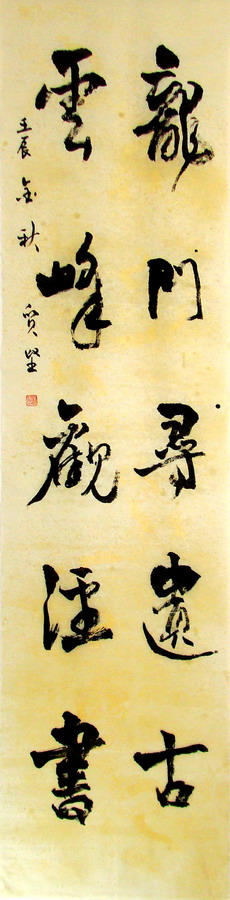 龍門尋遺古
雲峰觀經書
壬辰金秋 堅